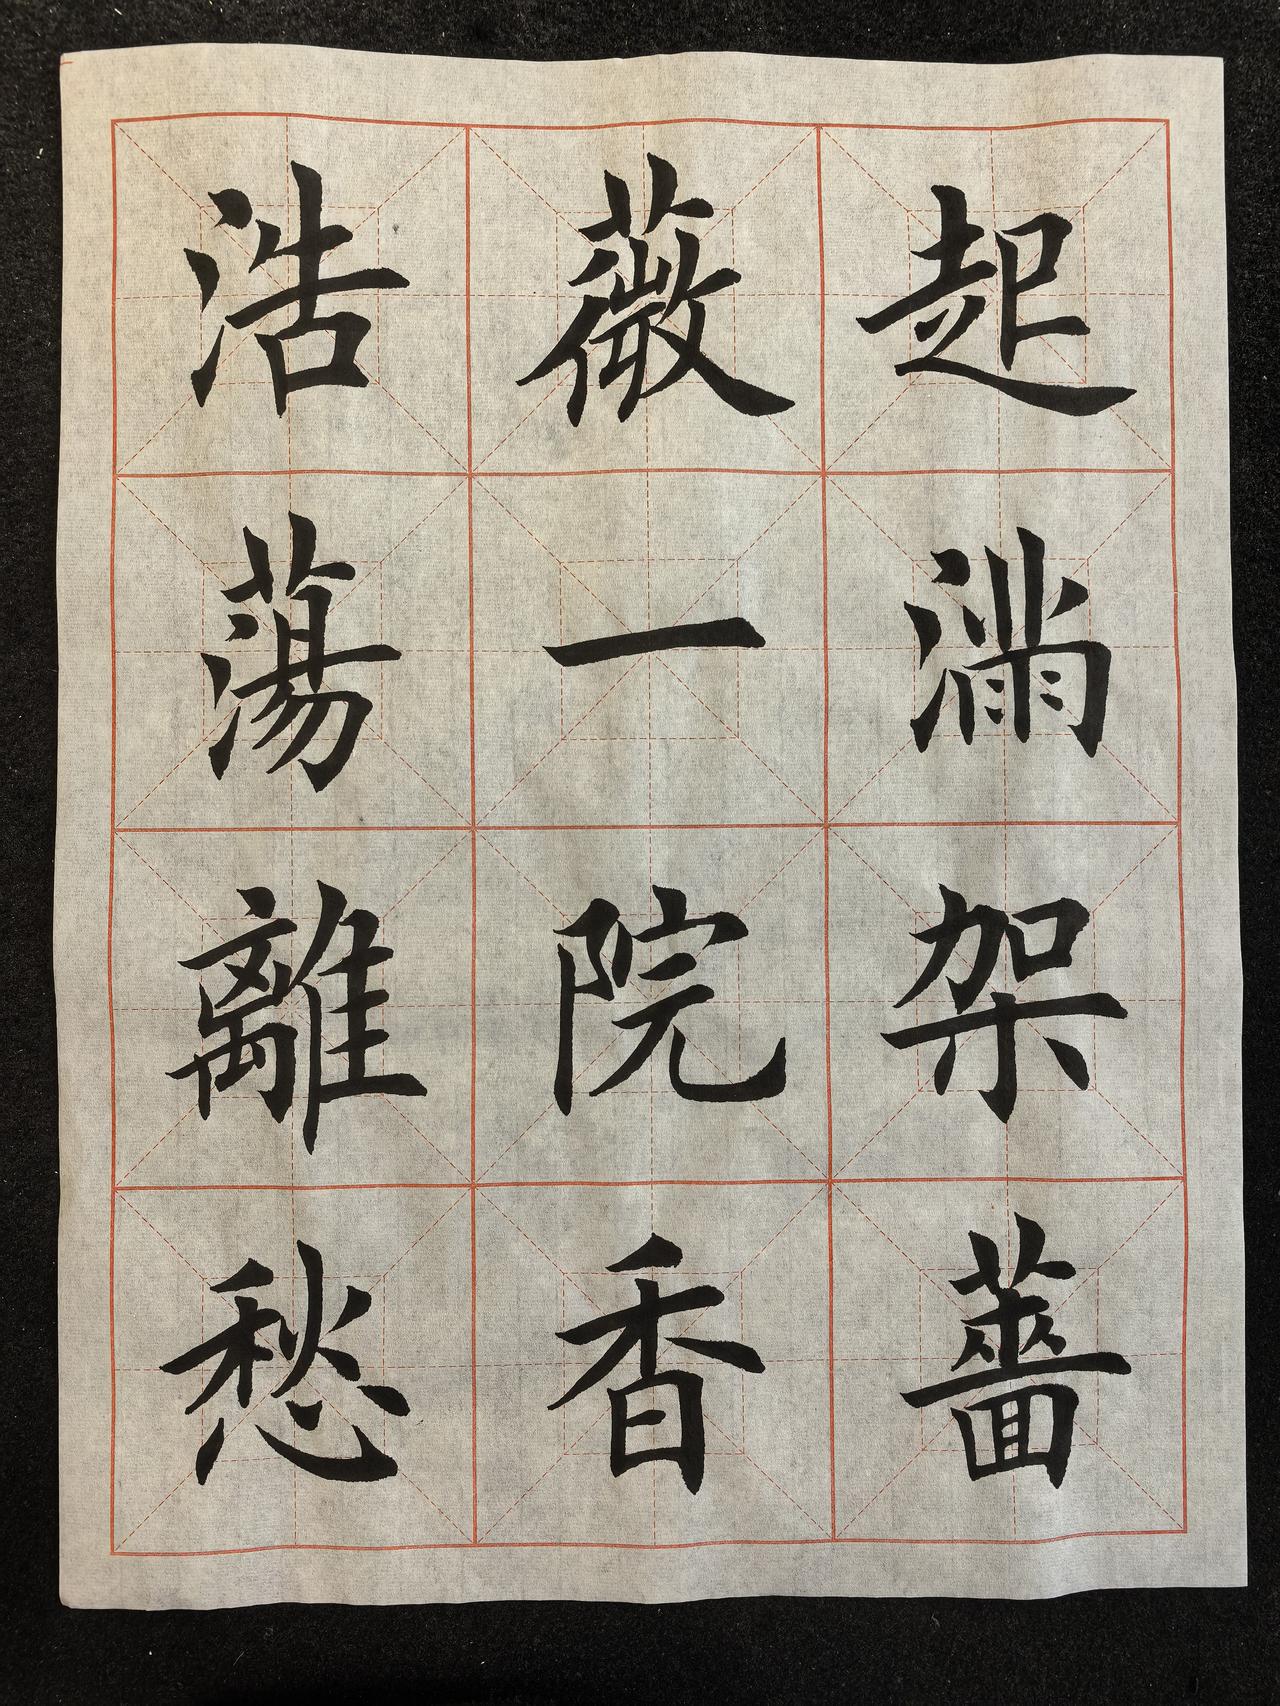 起滿架薔
薇一院香
浩蕩離愁